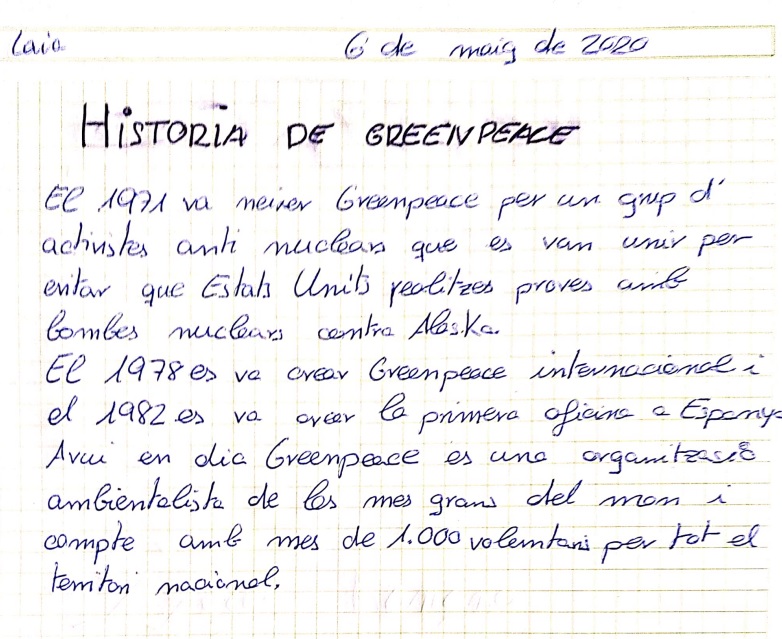 Laia 6 de maig de 2020
HiSTORIA DE GREENPEACE
El 1971 va neixer Greenpeace per un grup d'
activistes anti nuclears que es van unir per
evitar que Estats Units realitzes proves amb
bombes nuclears contra Alaska.
El 1978 es va crear Greenpeace internacional i
el 1982 es va creer la primera oficina a Espanya
Avui en dia Greenpeace es una organització
ambientalista de les mes grans del mon i
compte amb mes de 1.000 voluntaris per tot el
territori nacional.